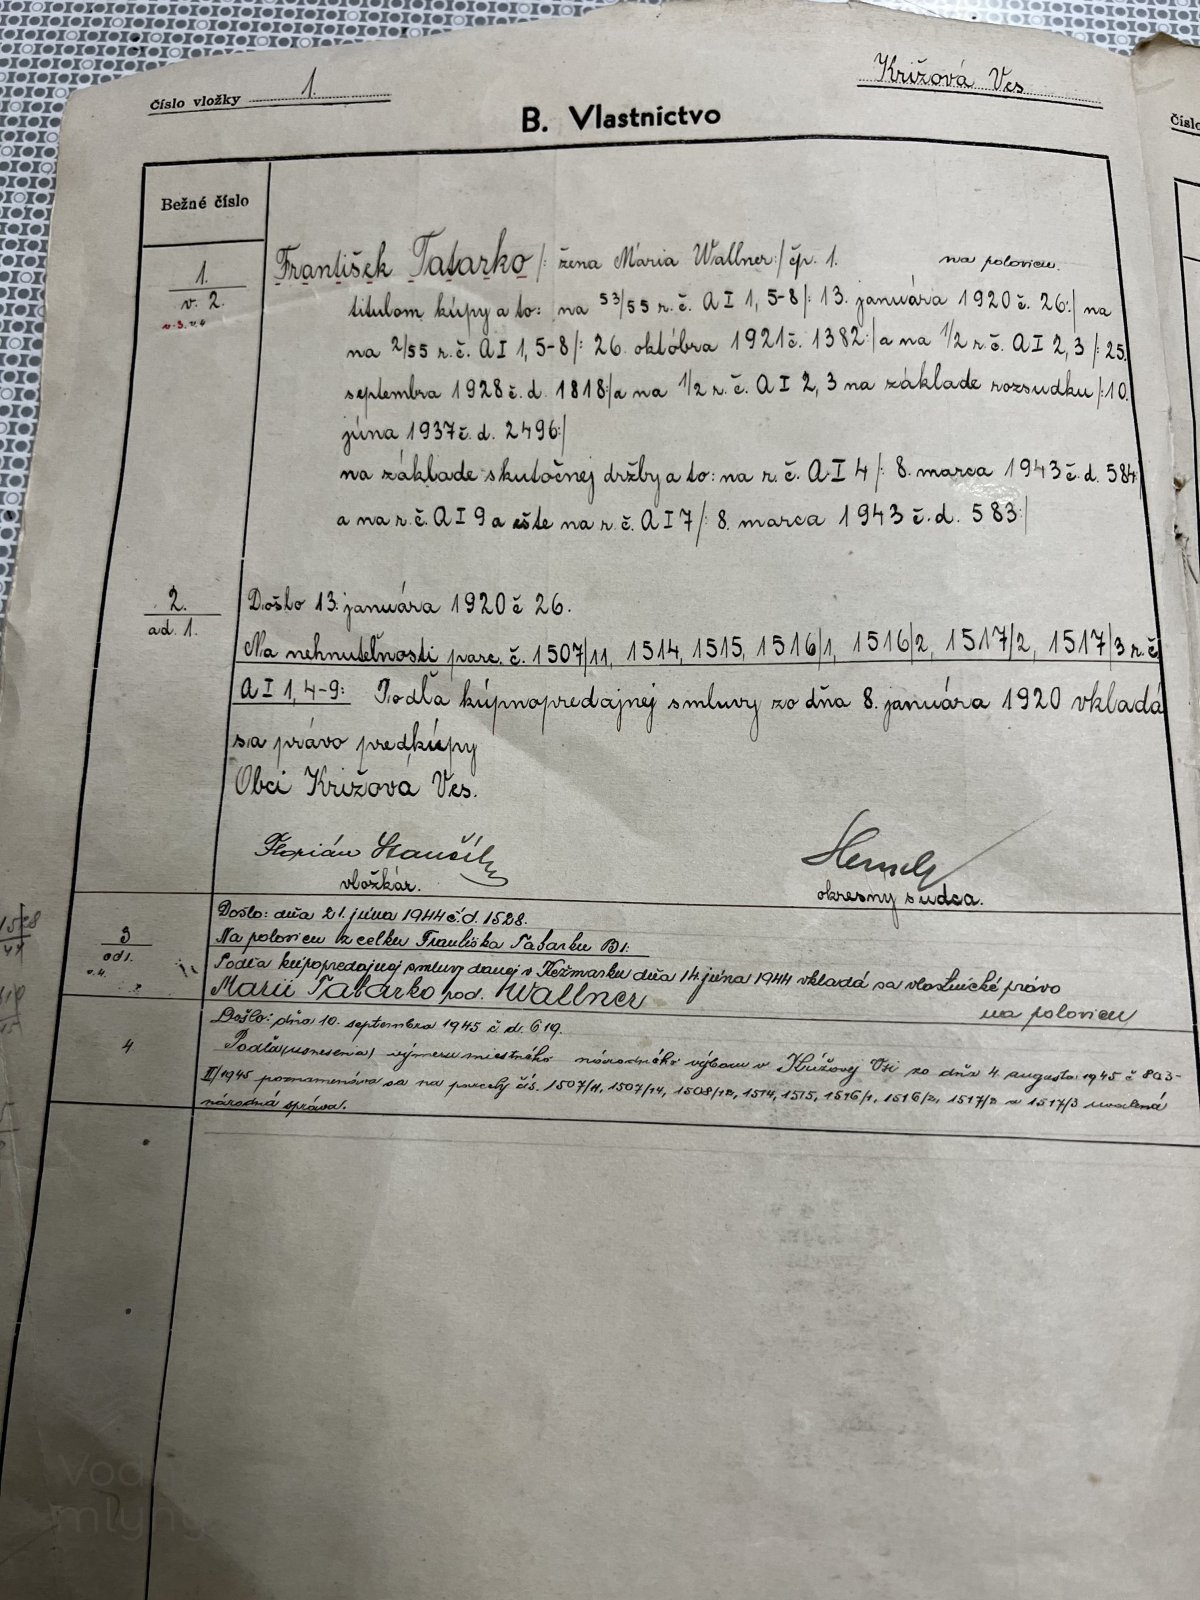 Číslo vložky 1.
Križová Ves
B. Vlastníctvo
Čísl
Bežné číslo
1.
v. 2.
v. 3. v. 4
František Tatarko /: žena Mária Wallner:/ čp. 1. na polovicu.
titulom kúpy a to: na 53/55 r. č. A I 1, 5-8 /: 13. januára 1920 č. 26:/ na
na 2/55 r. č. A I 1, 5-8 /: 26. októbra 1921 č. 1382:/ a na 1/2 r. č. A I 2, 3 /: 25.
septembra 1928 č. d. 1818:/ a na 1/2 r. č. A I 2, 3 na základe rozsudku /: 10.
júna 1937 č. d. 2496:/
na základe skutočnej držby a to: na r. č. A I 4 /: 8. marca 1943 č. d. 584
a na r. č. A I 9 a ešte na r. č. A I 7 /: 8. marca 1943 č. d. 583:/
2.
ad. 1.
Došlo 13. januára 1920 č 26.
Na nehnuteľnosti parc. č. 1507/11, 1514, 1515, 1516/1, 1516/2, 1517/2, 1517/3 r. č.
A I 1, 4-9: Podľa kúpnopredajnej smluvy zo dňa 8. januára 1920 vkladá
sa právo predkúpy
Obci Križová Ves.
Florián Stančík
vložkár.
okresný sudca.
3
od 1.
v. 4.
Došlo: dňa 21. júna 1944 č. d. 1528.
Na polovicu z celku Františka Tatarku B 1:
Podľa kúpopredajnej smluvy danej v Kežmarku dňa 14. júna 1944 vkladá sa vlastnícké právo
Marii Tatarko rod. Wallner na polovicu
4
Došlo: dňa 10. septembra 1945 č. d. 619.
Podľa (usnesenia) výmeru miestného národného výboru v Krížovej Vsi zo dňa 4 augusta 1945 č 803-
II/1945 poznamenáva sa na parcely čís. 1507/11, 1507/14, 1508/12, 1514, 1515, 1516/1, 1516/2, 1517/2 a 1517/3 uvalená
národná správa.
Vodné
mlyny